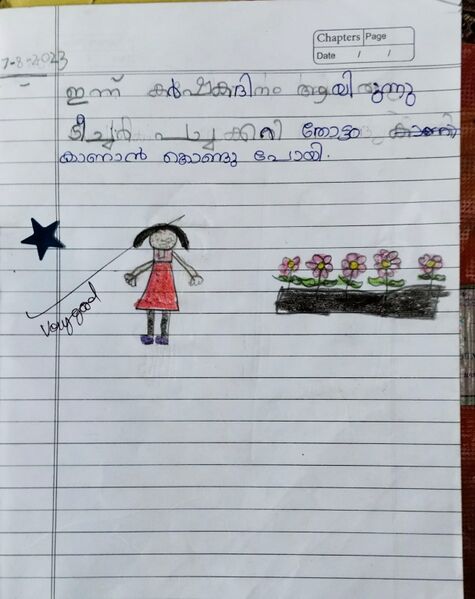 Chapters Page
Date / /
7-8-2023
ഇന്ന് കർഷകദിനം ആയിരുന്നു
ടീച്ചർ പച്ചക്കറി തോട്ടം
കാണാൻ കൊണ്ടു പോയി.
Very good